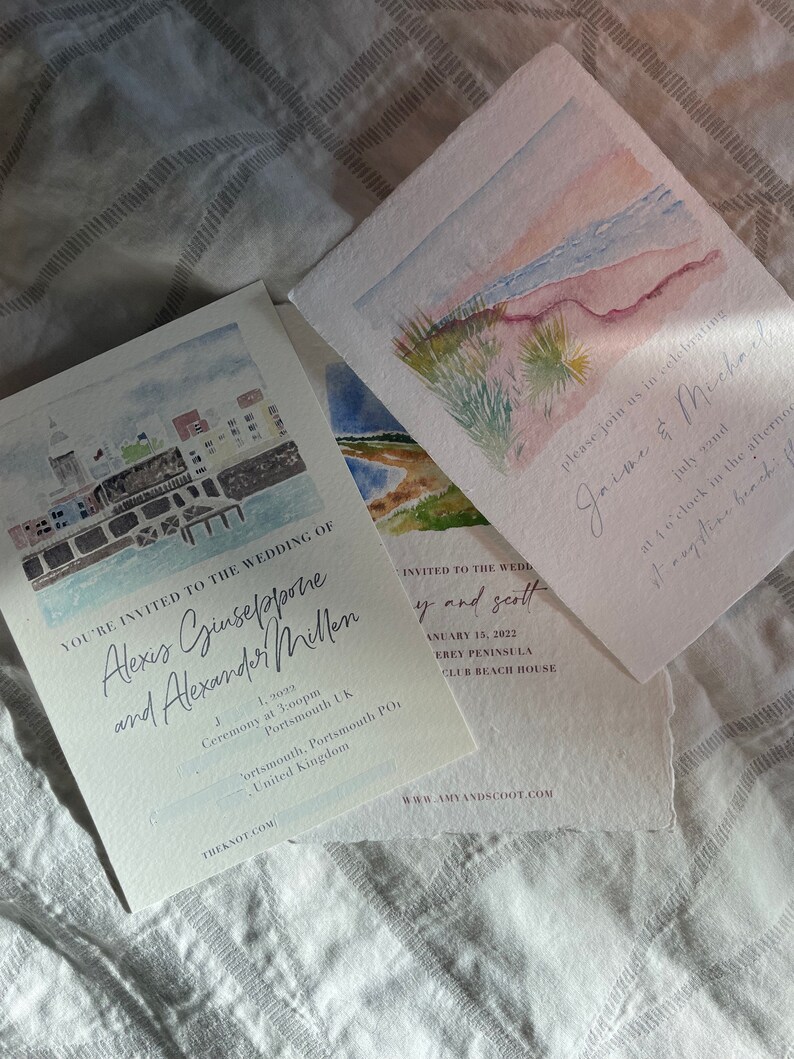 YOU'RE INVITED TO THE WEDDING OF
Alexis Giuseppone
and Alexander Millen
J 1, 2022
Ceremony at 3:00pm
Portsmouth UK
ortsmouth, Portsmouth PO1
, United Kingdom
THEKNOT.COM
INVITED TO THE WEDD
y and scott
ANUARY 15, 2022
EREY PENINSULA
CLUB BEACH HOUSE
WWW.AMYANDSCOOT.COM
please join us in celebrating
Jaime & Michael
july 22nd
at 4 o'clock in the afternoo
st augstine beach,